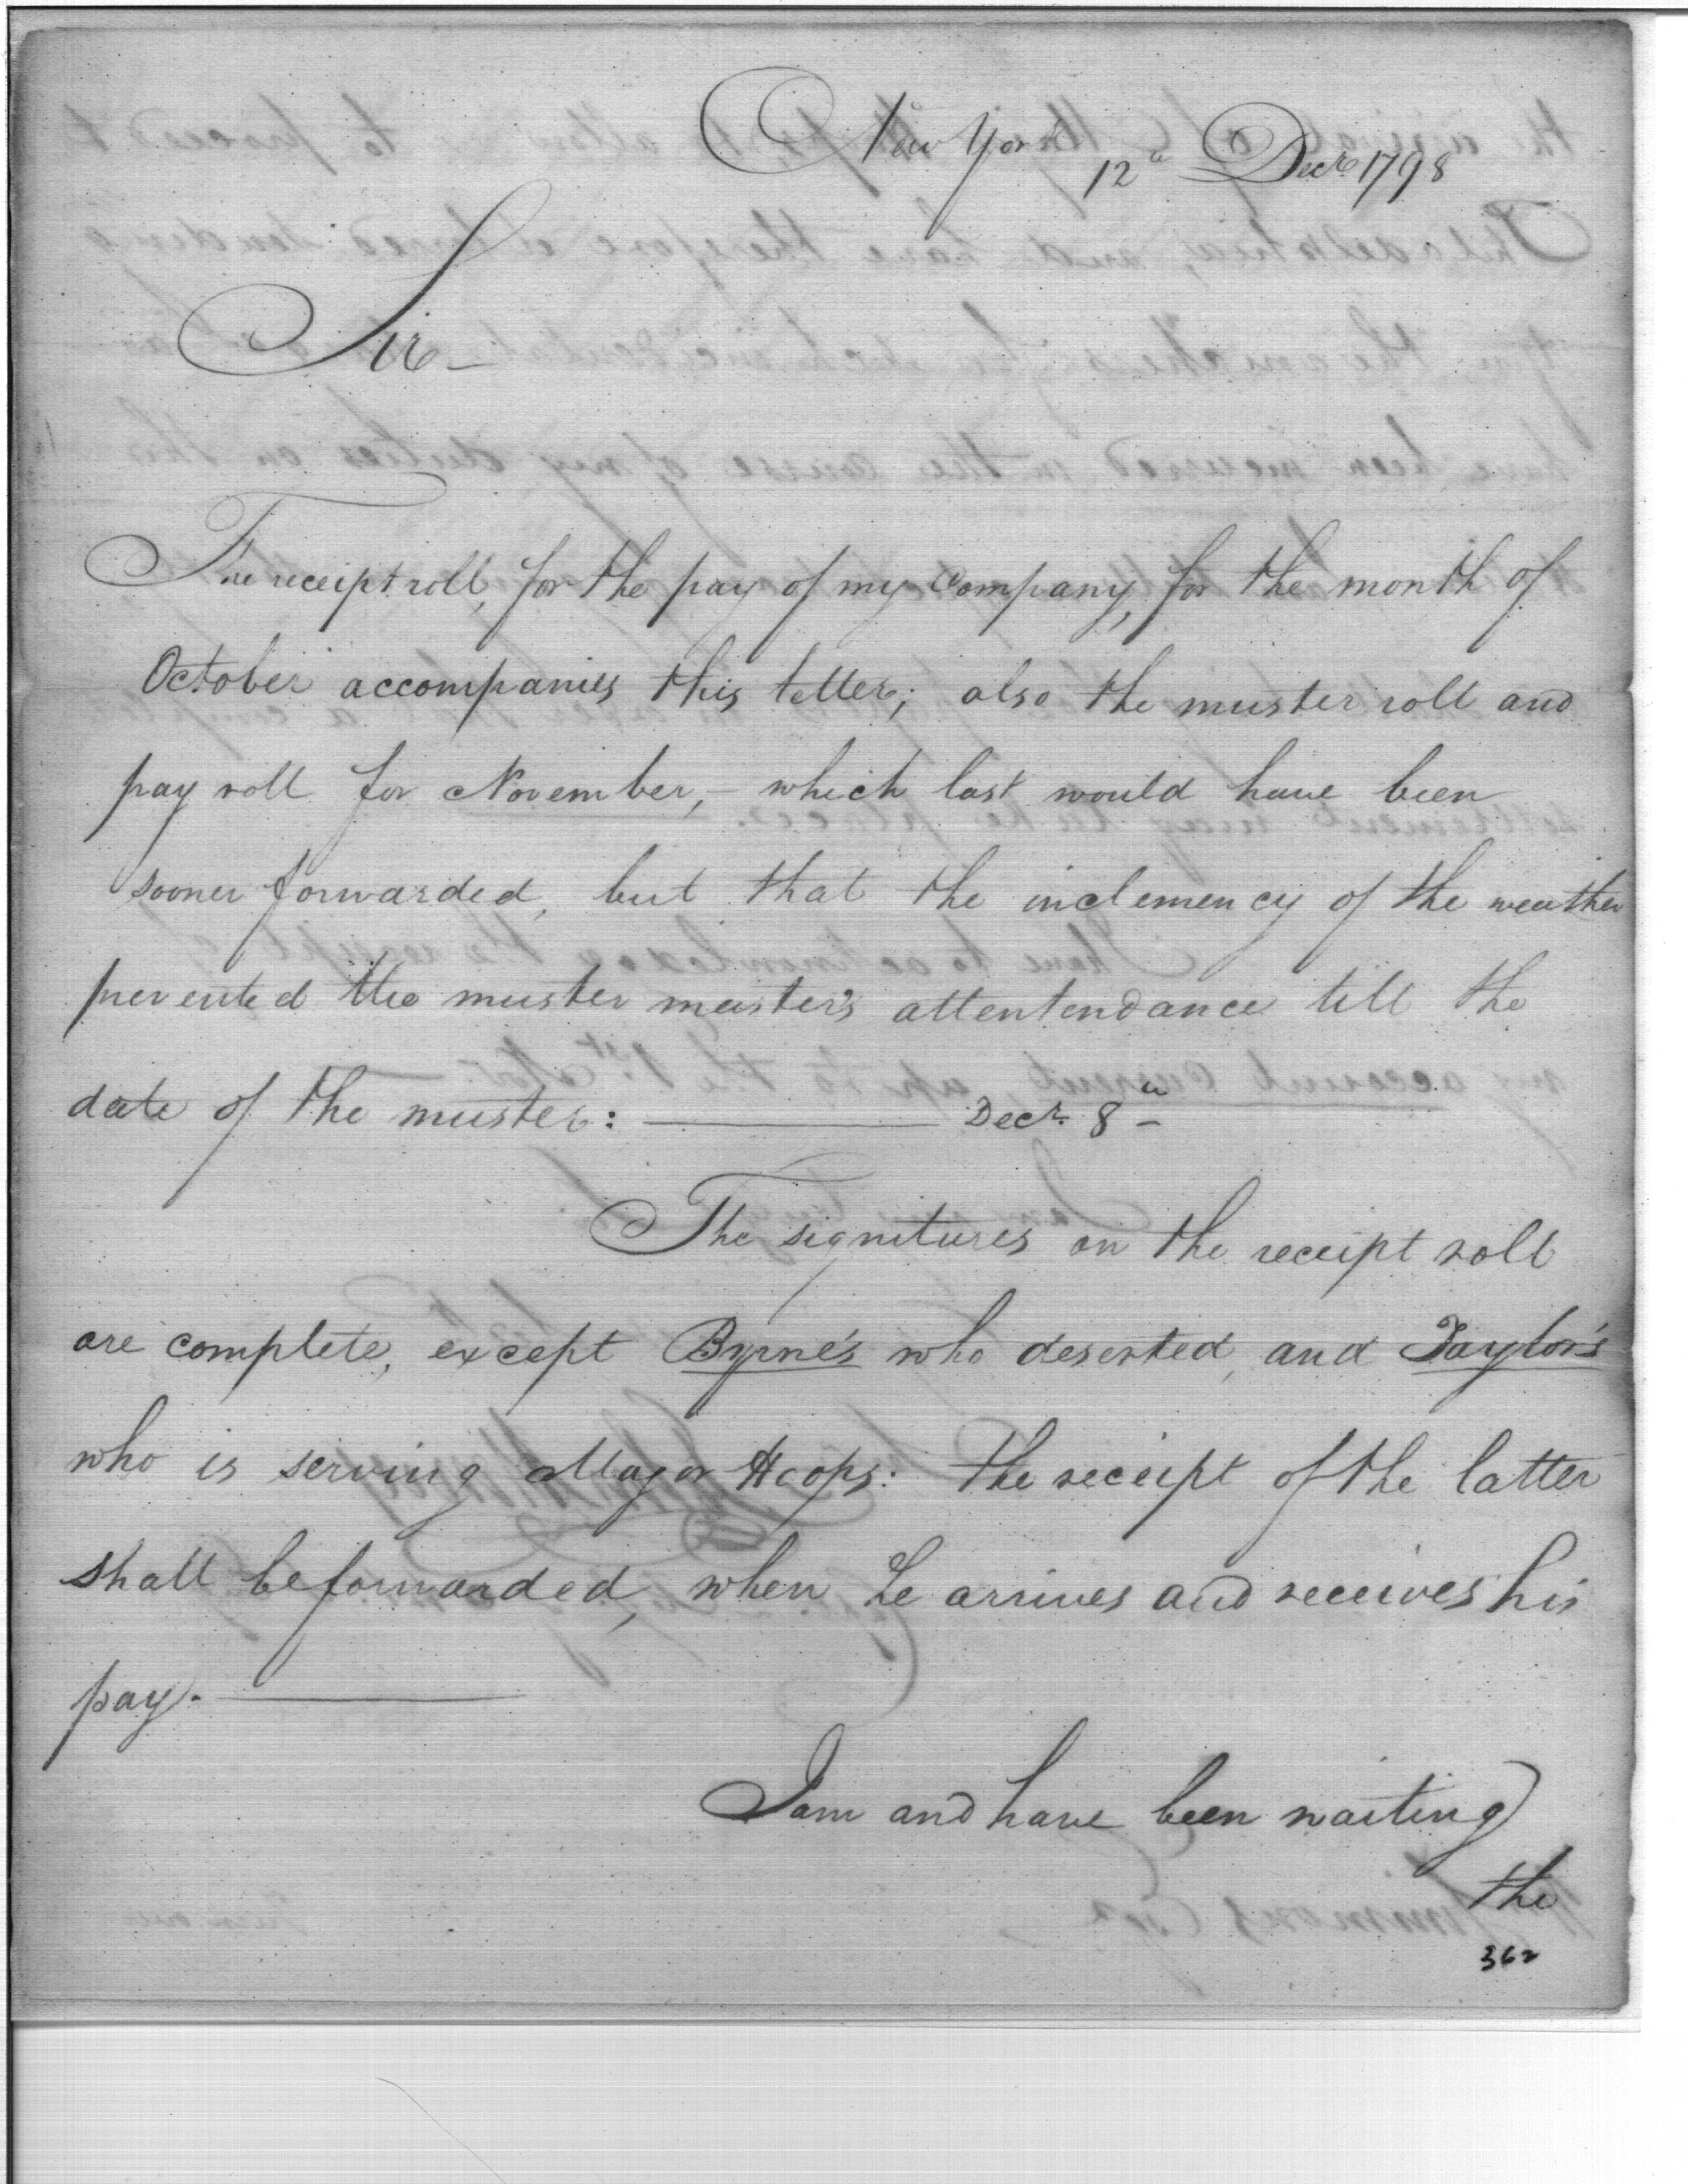 New York
12th Decr 1798
Sir –
The receipt roll, for the pay of my company, for the month of
October accompanies this letter; also the muster roll and
pay roll for November, – which last would have been
sooner forwarded, but that the inclemency of the weather
prevented the muster master's attentendance till the
date of the muster: ——— Decr. 8th –
The signitures on the receipt roll
are complete, except Byrne's who deserted, and Taylor's
who is serving Major Hoops: the receipt of the latter
shall be forwarded, when he arrives and receives his
pay. ———
I am and have been waiting
the
362